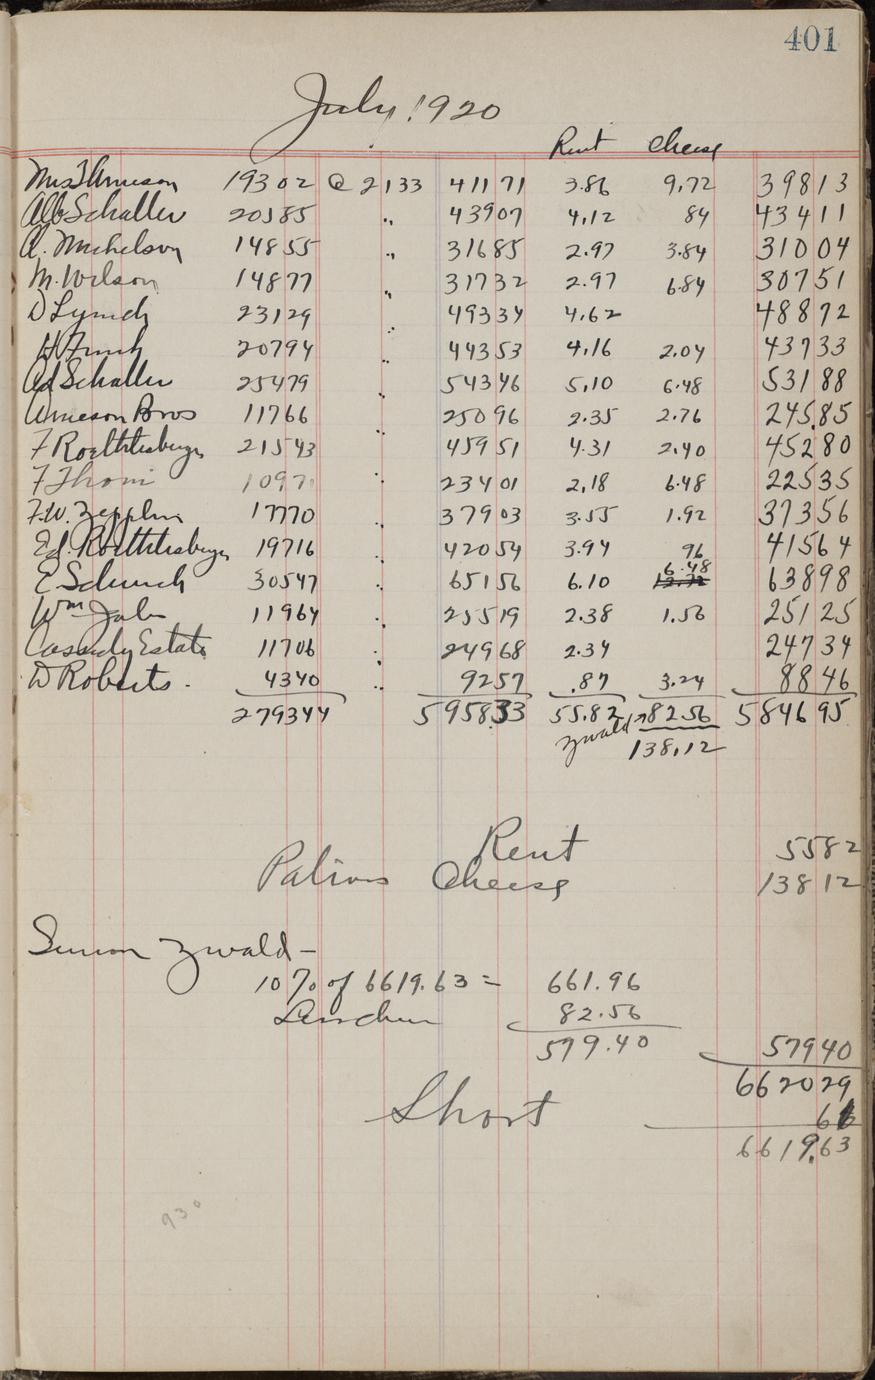 401
July 1920
Rent Cheese
Mrs Thmeson 19302 @ 2133 411 71 3.86 9.72 398 13
Alb Schaller 20585 " 439 07 4.12 84 434 11
A. Michelson 14855 " 316 85 2.97 3.84 310 04
M. Wilson 14877 " 317 32 2.97 6.84 307 51
D Lynch 23129 " 493 34 4.62 488 72
H Finch 20794 " 443 53 4.16 2.04 437 33
Ad Schaller 25479 " 543 46 5.10 6.48 531 88
Arneson Bros 11766 " 250 96 2.35 2.76 245.85
F Roethlisberger 21543 " 459 51 4.31 2.40 452 80
F Thoni 1097 " 234 01 2.18 6.48 225 35
F.W. Zepplin 17770 " 379 03 3.55 1.92 373 56
Ed. Roethlisberger 19716 " 420 54 3.94 96 415 64
E Schuch 30547 " 651 56 6.10 6.48 638 98
Wm Jabs 11964 " 255 19 2.38 1.56 251 25
Cassedy Estate 11706 " 249 68 2.34 247 34
D Roberts. 4340 " 92 57 .87 3.24 88 46
279344 5958.33 55.82 Zwald 82.56 5846 95
138.12
Rent 55 82
Patrons Cheese 138 12
Simon Zwald —
10% of 6619.63 = 661.96
82.56
579.40 579 40
6620 29
Short 66
6619.63
930